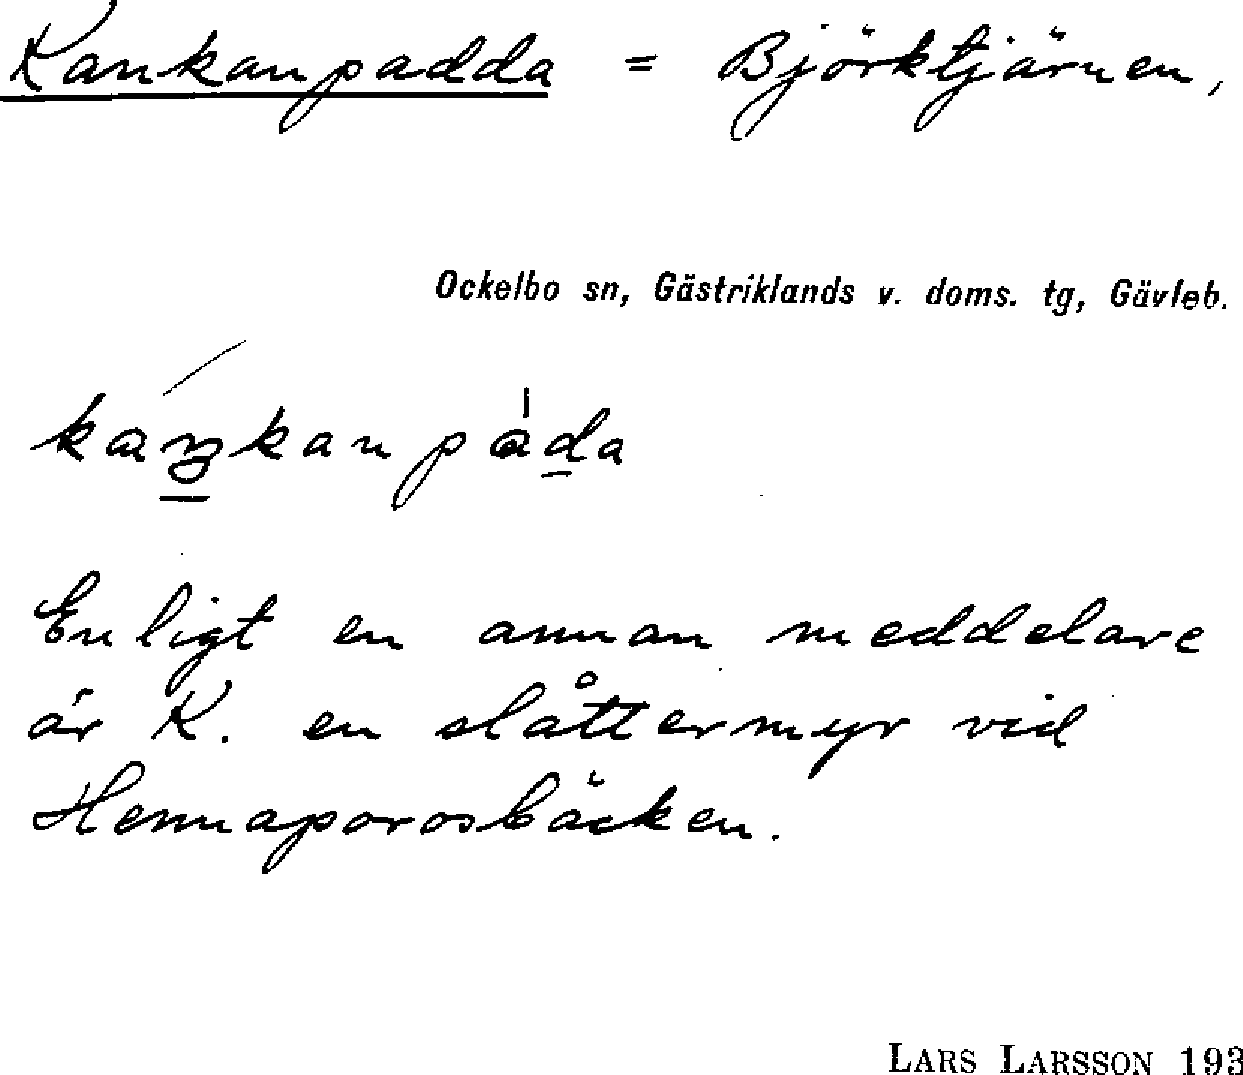 Kankanpadda = Björktjärnen,
Ockelbo sn, Gästriklands v. doms. tg, Gävleb.
Enligt en annan meddelare
är K. en slåttermyr vid
Hennaporosbäcken.
LARS LARSSON 193